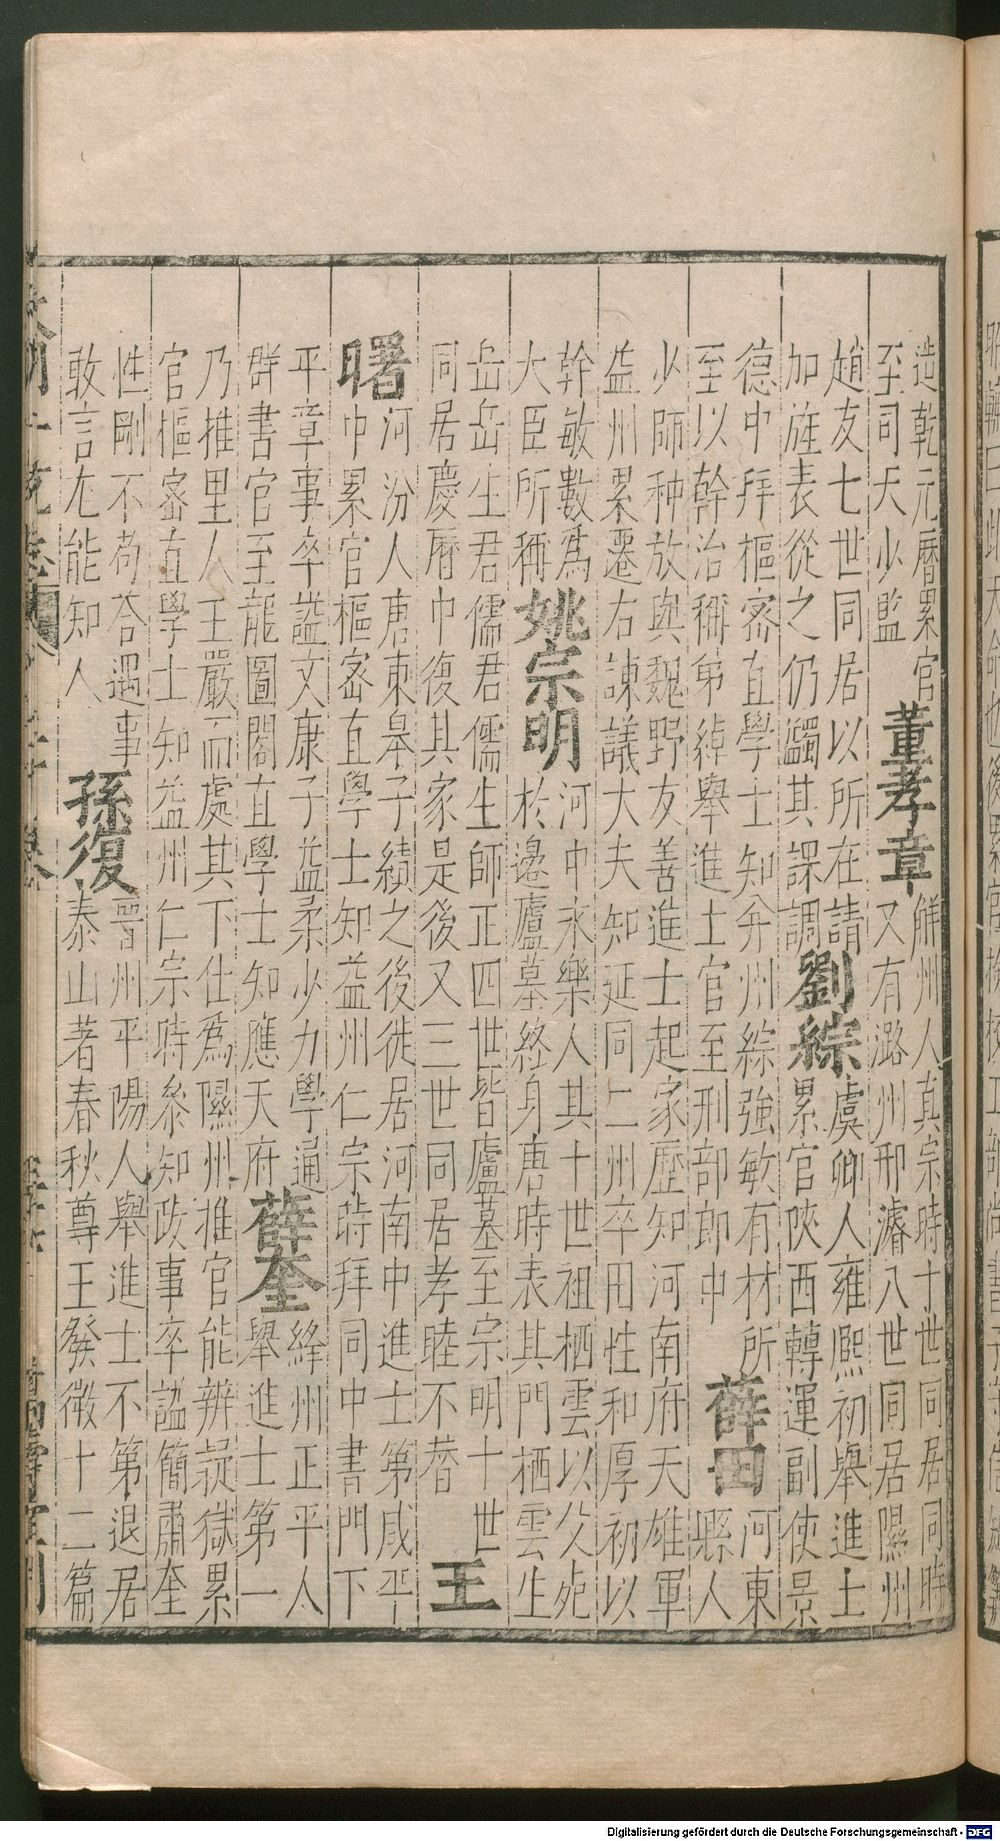 造乾元曆累官
至同天少監
董孝章
觧州人真宗時十世同居同時
又有潞州邢濬八世同居隰州
趙友七世同居以所在請
加旌表從之仍蠲其課調
劉綜
虞卿人雍熈初舉進士
累官陜西轉運副使景
德中拜樞宻直學士知弁州綜強敏有材所
至以幹治稱弟綽舉進士官至刑部郎中
薛田
河東
縣人
少師种放與魏野友善進士起家歷知河南府天雄軍
益州累遷右諫議大夫知延同二州卒田性和厚初以
幹敏數爲
大臣所稱
姚宗明
河中永樂人其十世祖栖雲以父死
於邊廬墓終身唐時表其門栖雲生
岳岳生君儒君儒生師正四世皆廬墓至宗明十世
同居慶曆中復其家是後又三世同居孝睦不替
王
曙
河汾人唐東皋子績之後徙居河南中進士第咸平
中累官樞宻直學士知益州仁宗時拜同中書門下
平章事卒謚文康子益柔少力學通
群書官至龍圖閣直學士知應天府
薛奎
絳州正平人
舉進士第一
乃推里人王嚴而處其下仕爲隰州推官能辨疑獄累
官樞宻直學士知益州仁宗時叅知政事卒謚簡肅奎
性剛不茍合遇事
敢言尤能知人
孫復
晋州平陽人舉進士不第退居
泰山著春秋尊王發微十二篇
Digitalisierung gefördert durch die Deutsche Forschungsgemeinschaft - DFG